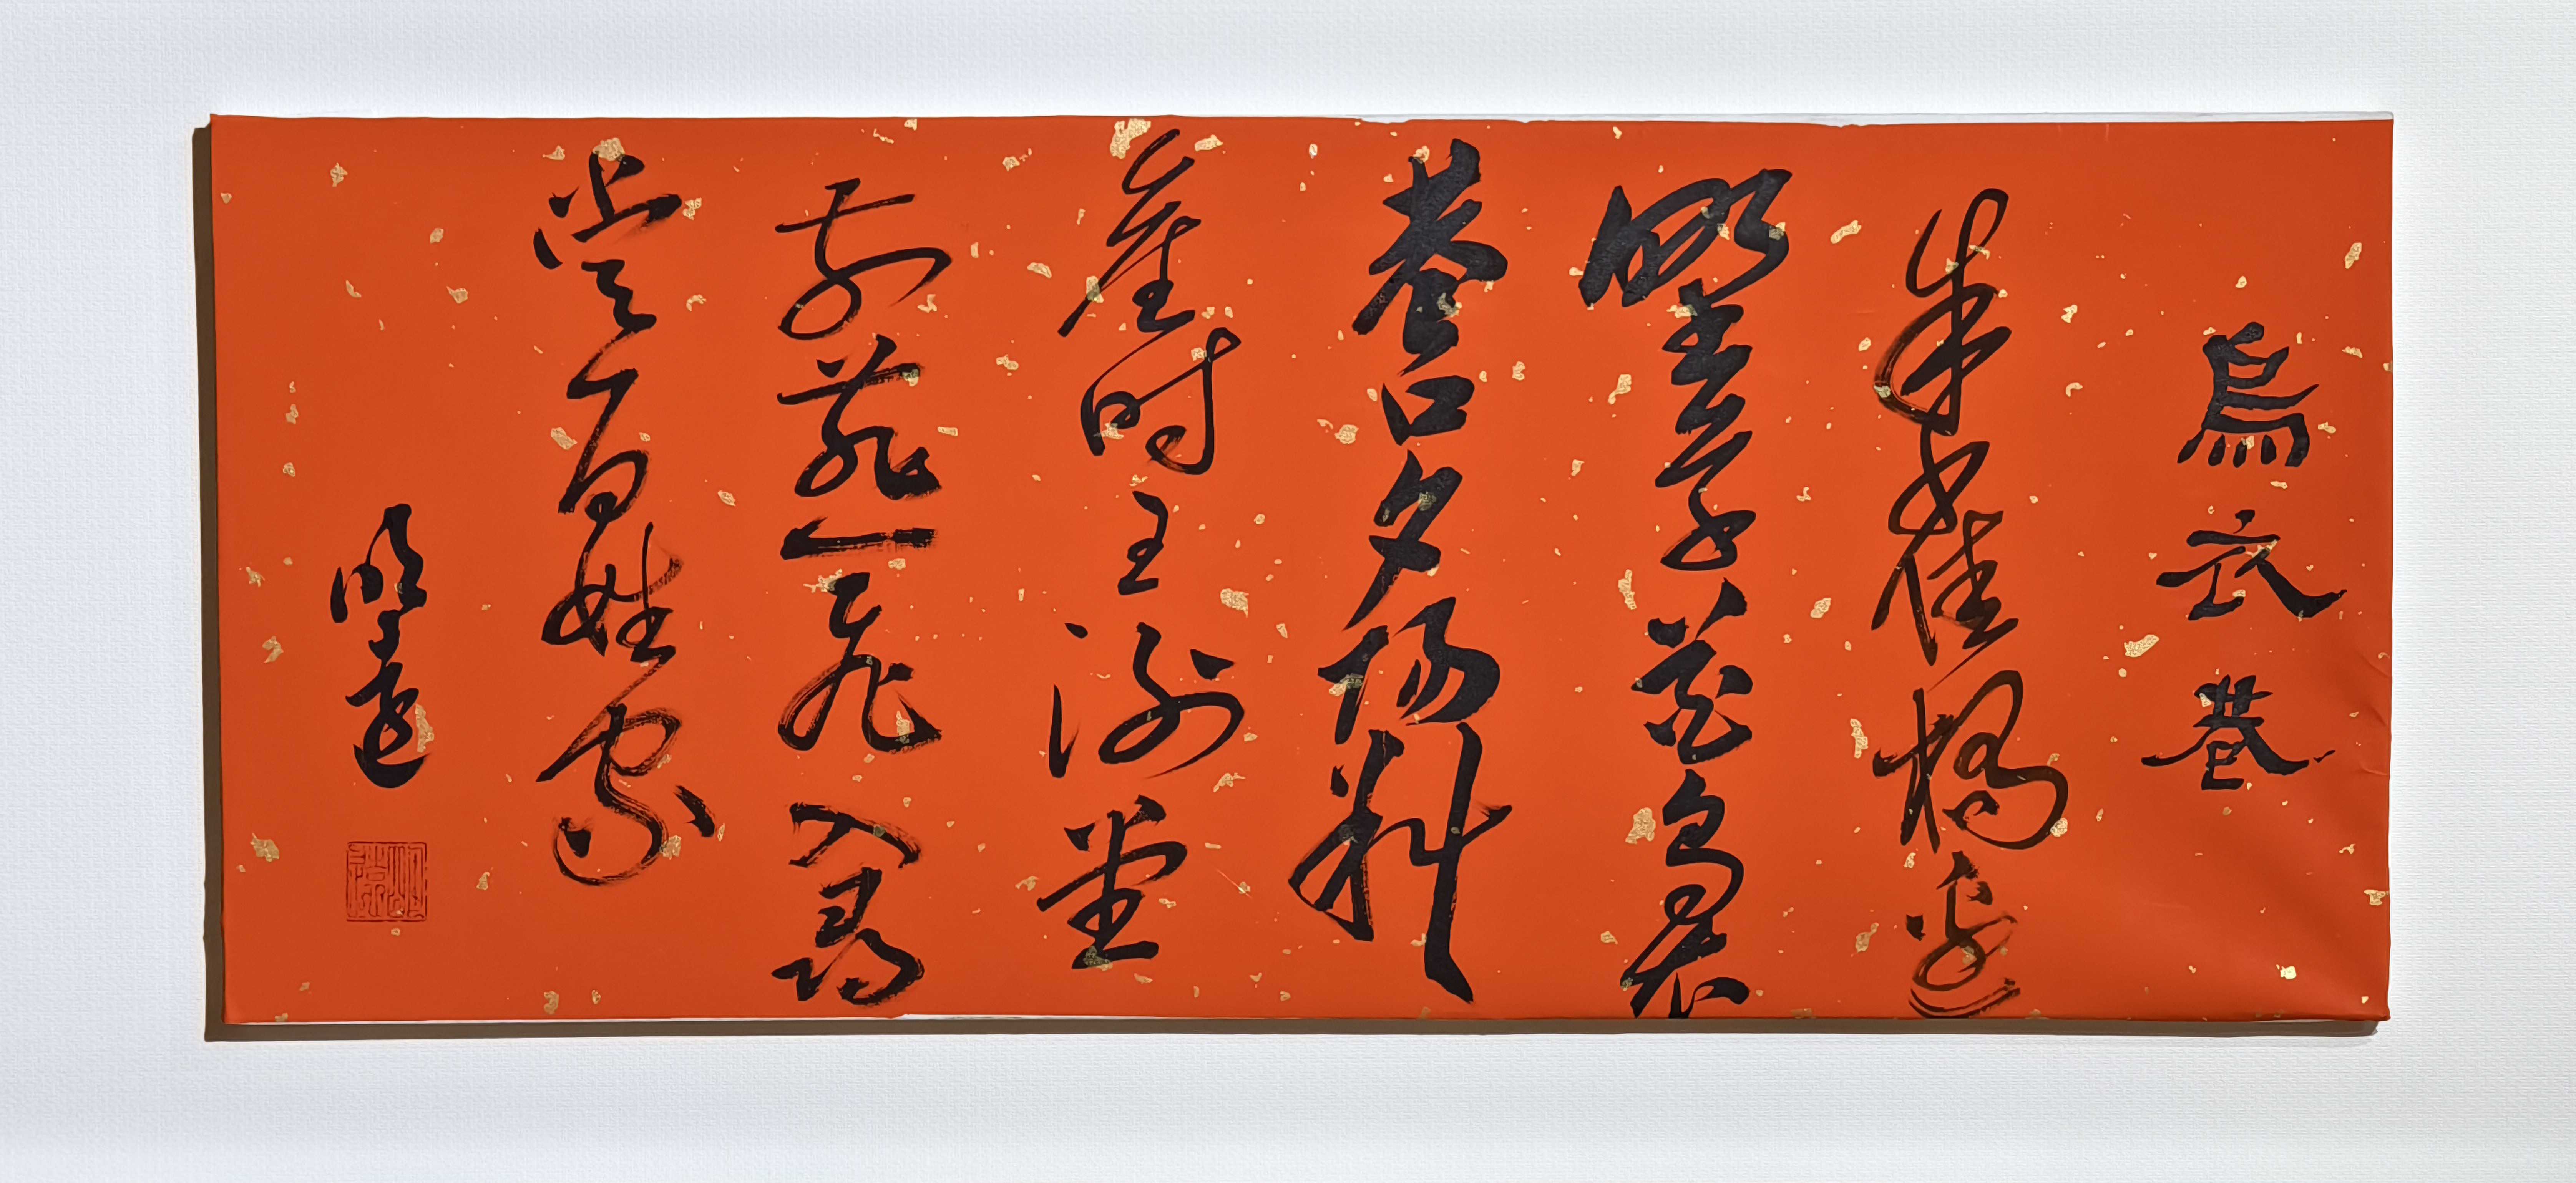 烏衣巷
朱雀橋邊
埜草花烏衣
巷口夕陽斜
舊時王謝堂
前燕飛入尋
常百姓家
明遠